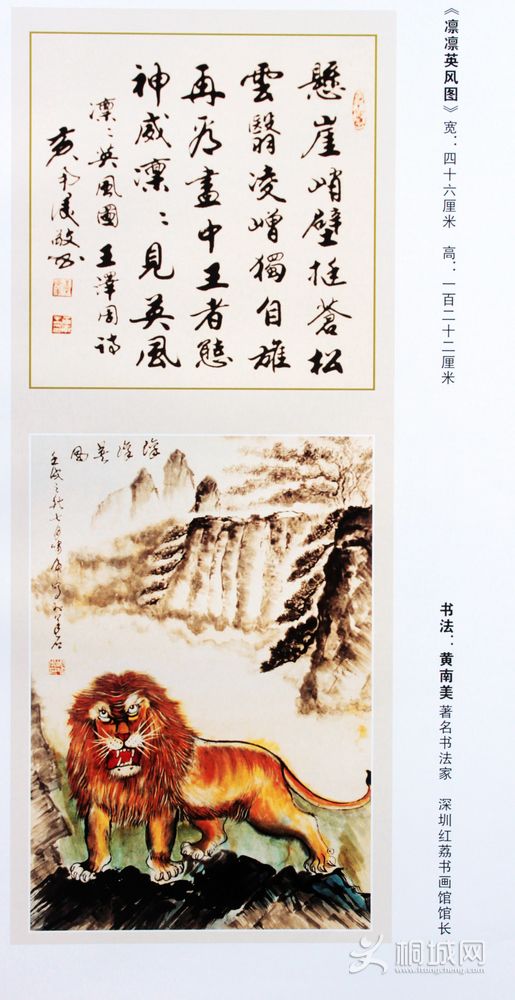 《凛凛英风图》 宽：四十六厘米 高：一百二十二厘米
书法：黄南美 著名书法家 深圳红荔书画馆馆长
懸崖峭壁挺蒼松
雲翳凌嶒獨自雄
再看畫中王者態
神威凜〻見英風
凜〻英風圖 王澤周詩
黃南美敬书
凜凜英風
桐城网
www.itongcheng.com